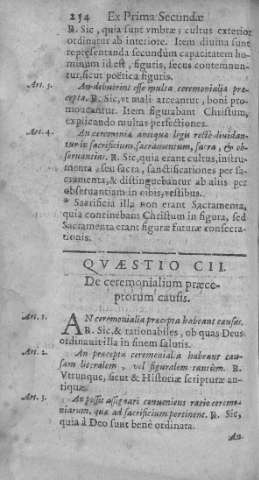 254 Ex Prima Secundæ
R. Sic, quia sunt vmbræ; cultus exterior
ordinatur ab interiore. Item diuina sunt
repræsentanda secundum capacitatem ho
minum id est, figutis, secus contemnun-
tur, sicut poëtica figutis.
Art. 3. An debuerint esse multa ceremonialia præ
cepta. R. Sic, vt mali arceantur, boni pro-
moueantur. Item figurabant Christum,
explicando multas perfectiones.
Art. 4. An ceremoniæ antiquæ legis rectè diuidan-
tur in sacrificium, sacramentum, sacra, & ob
seruantias. R. Sic, quia erant cultus, instru-
menta, seu sacra, sanctificationes per sa-
cramenta, & distinguebantur ab aliis per
obseruantiam in cibis, vestibus.
* Sacrificia illa non erant Sacramenta,
quia continebant Christum in figura, sed
Sacramenta erant figuræ futuræ consecra-
tionis.
QVÆSTIO CII.
De ceremonialium præce-
ptorum causis.
Art. 1. AN ceremonialia præcepta habeant causas.
R. Sic, & rationabiles, ob quas Deus
ordinauit illa in finem salutis.
Art. 2. An præcepta ceremonialia habeant cau-
sam litteralem, vel figuralem tantùm. R.
Vtrunque, sicut & Historiæ scripturæ an-
tiquæ.
Art. 3. An possit assignari conueniens ratio ceremo-
niarum, quæ ad sacrificium pertinent. R. Sic,
quia à Deo sunt benè ordinata.
An